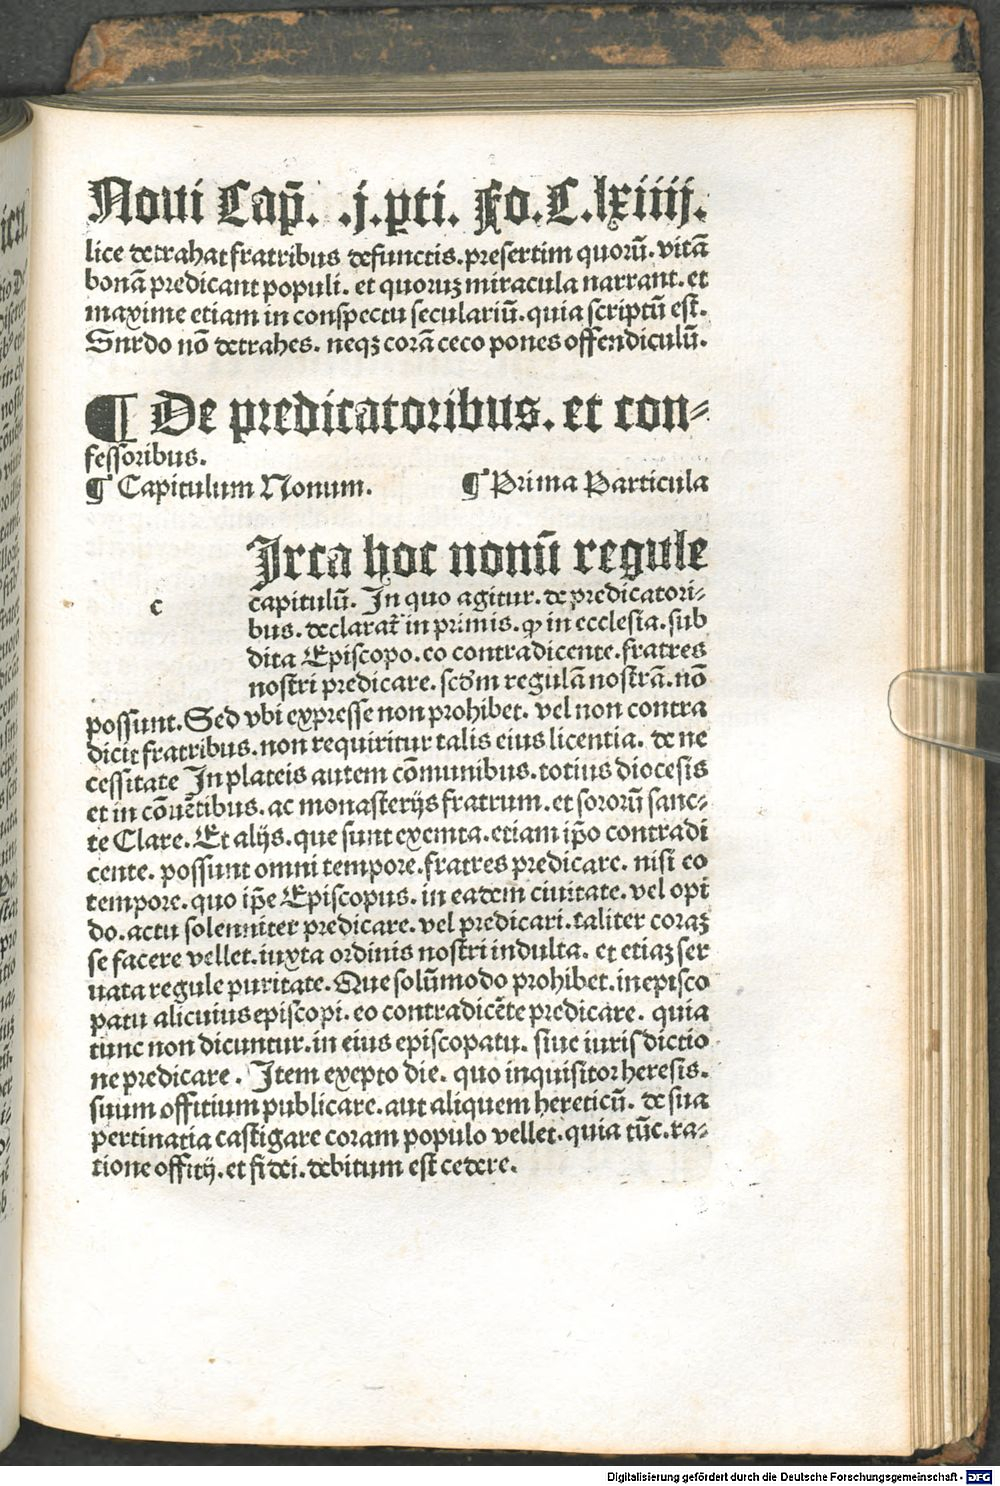 Noui Cap̄. .j.ꝑti. Fo.C.lxiiij.
lice detrahat fratribus defunctis. presertim quorū. vitā
bonā predicant populi. et quoruꝫ miracula narrant. et
maxime etiam in conspectu seculariū. quia scriptū est.
Snrdo nō detrahes. neqꝫ corā ceco pones offendiculū.
¶ De predicatoribus. et con-
fessoribus.
¶ Capitulum Nonum. ¶ Prima Particula
Irca hoc nonū regule
c
capitulū. In quo agitur. de predicatori-
bus. declarat᷑ in primis. ꝙ in ecclesia. sub
dita Episcopo. eo contradicente. fratres
nostri predicare. scd̄m regulā nostrā. nō
possunt. Sed vbi expresse non prohibet. vel non contra
dicit fratribus. non requiritur talis eius licentia. de ne
cessitate In plateis autem cōmunibus. totius diocesis
et in cōuētibus. ac monasterijs fratrum. et sororū sanc-
te Clare. Et alijs. que sunt exemta. etiam ip̄o contradi
cente. possunt omni tempore. fratres predicare. nisi eo
tempore. quo ip̄e Episcopus. in eadem ciuitate. vel opi
do. actu solenniter predicare. vel predicari. taliter coraꝫ
se facere vellet. iuxta ordinis nostri indulta. et etiaꝫ ser
uata regule puritate. Que solūmodo prohibet. in episco
patu alicuius episcopi. eo contradicēte predicare. quia
tunc non dicuntur. in eius episcopatu. siue iurisdictio
ne predicare. Item exepto die. quo inquisitor heresis.
suum offitium publicare. aut aliquem hereticū. de sua
pertinatia castigare coram populo vellet. quia tūc. ra-
tione offitij. et fidei. debitum est cedere.
Digitalisierung gefördert durch die Deutsche Forschungsgemeinschaft - DFG